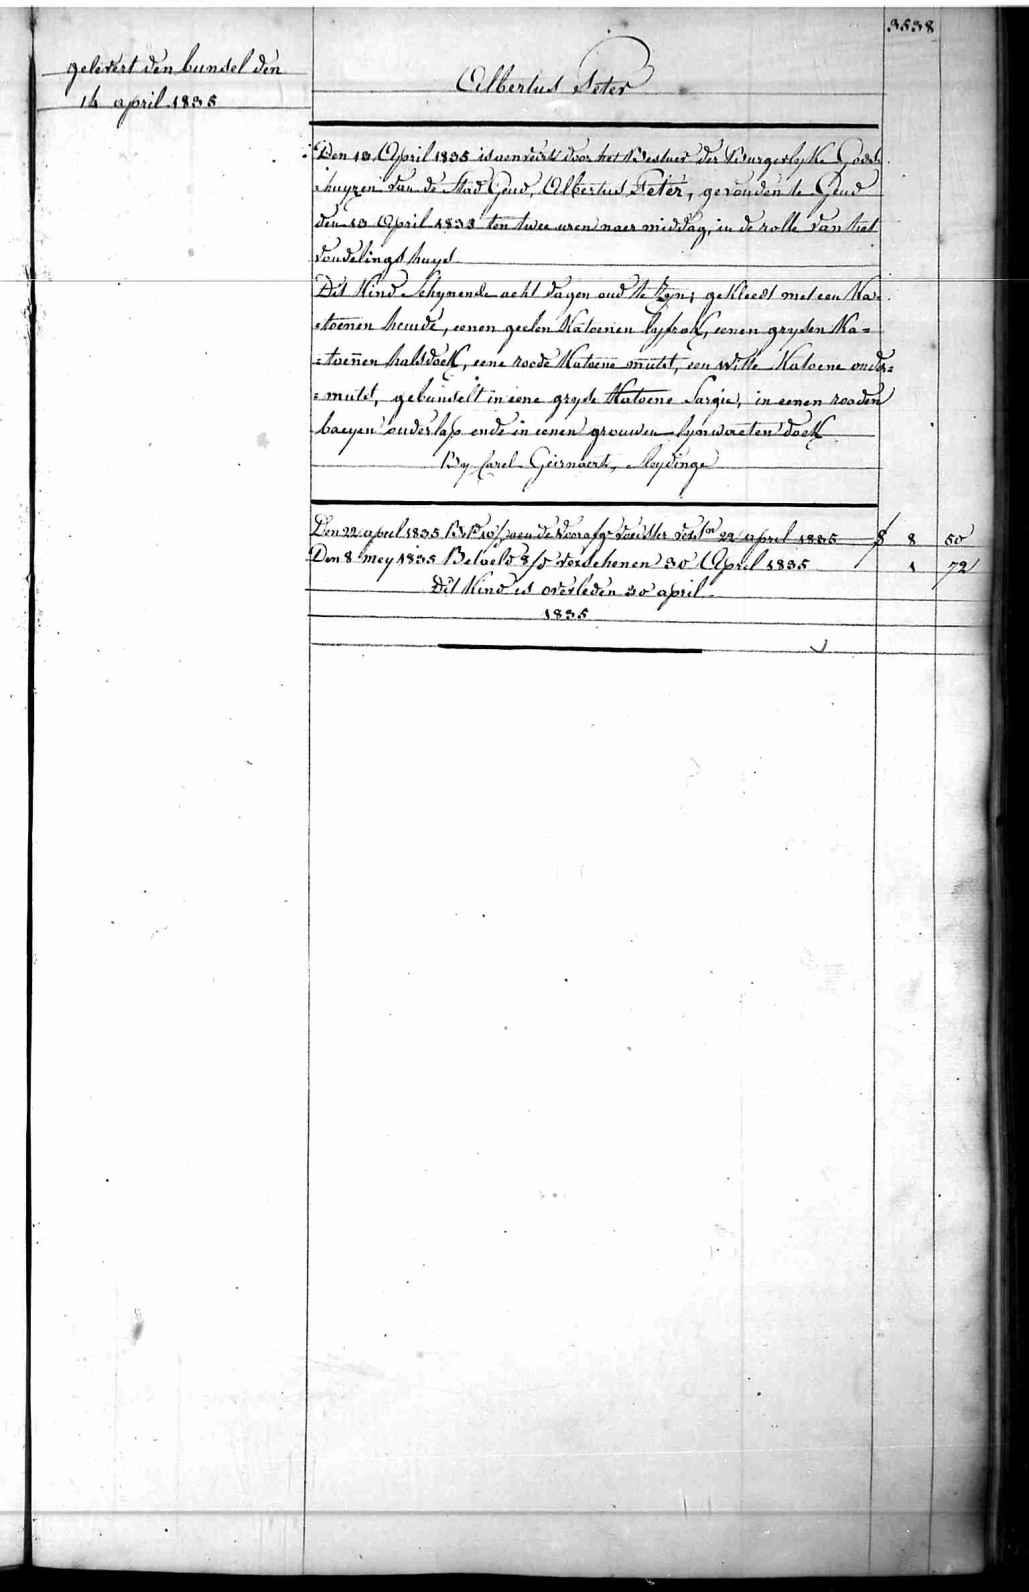 3538
gelevert den bunsel den
14 april 1835
Albertus Peter
Den 13 April 1835 is aenveirt door het Bestuer der Burgerlyke Gods=
=huyzen van de Stad Gend, Albertus Peter, gevonden te Gend
den 13 April 1833 ten twee uren naer middag, in de rolle van het
vondelings huys
Dit Kind schynende acht dagen oud te zyn; gekleedt met een Ka=
=toenen hemde, eenen geelen Katoenen lyfrok, eenen grysen Ka=
=toenen halsdoek, eene roode Katoene mutst, een witte Katoene onder=
=mutst, gebunselt in eene gryse Katoene Sargie, in eenen rooden
baeyen onderlap ende in eenen grouwen lynwaeten doek
By Carel Geirnaert, Sleydinge
Den 22 april 1835 aen de 22 april 1835 8 50
Den 8 mey 1835 Betaeld verschenen 30 April 1835 1 72
Dit Kind is overleden 30 april
1835